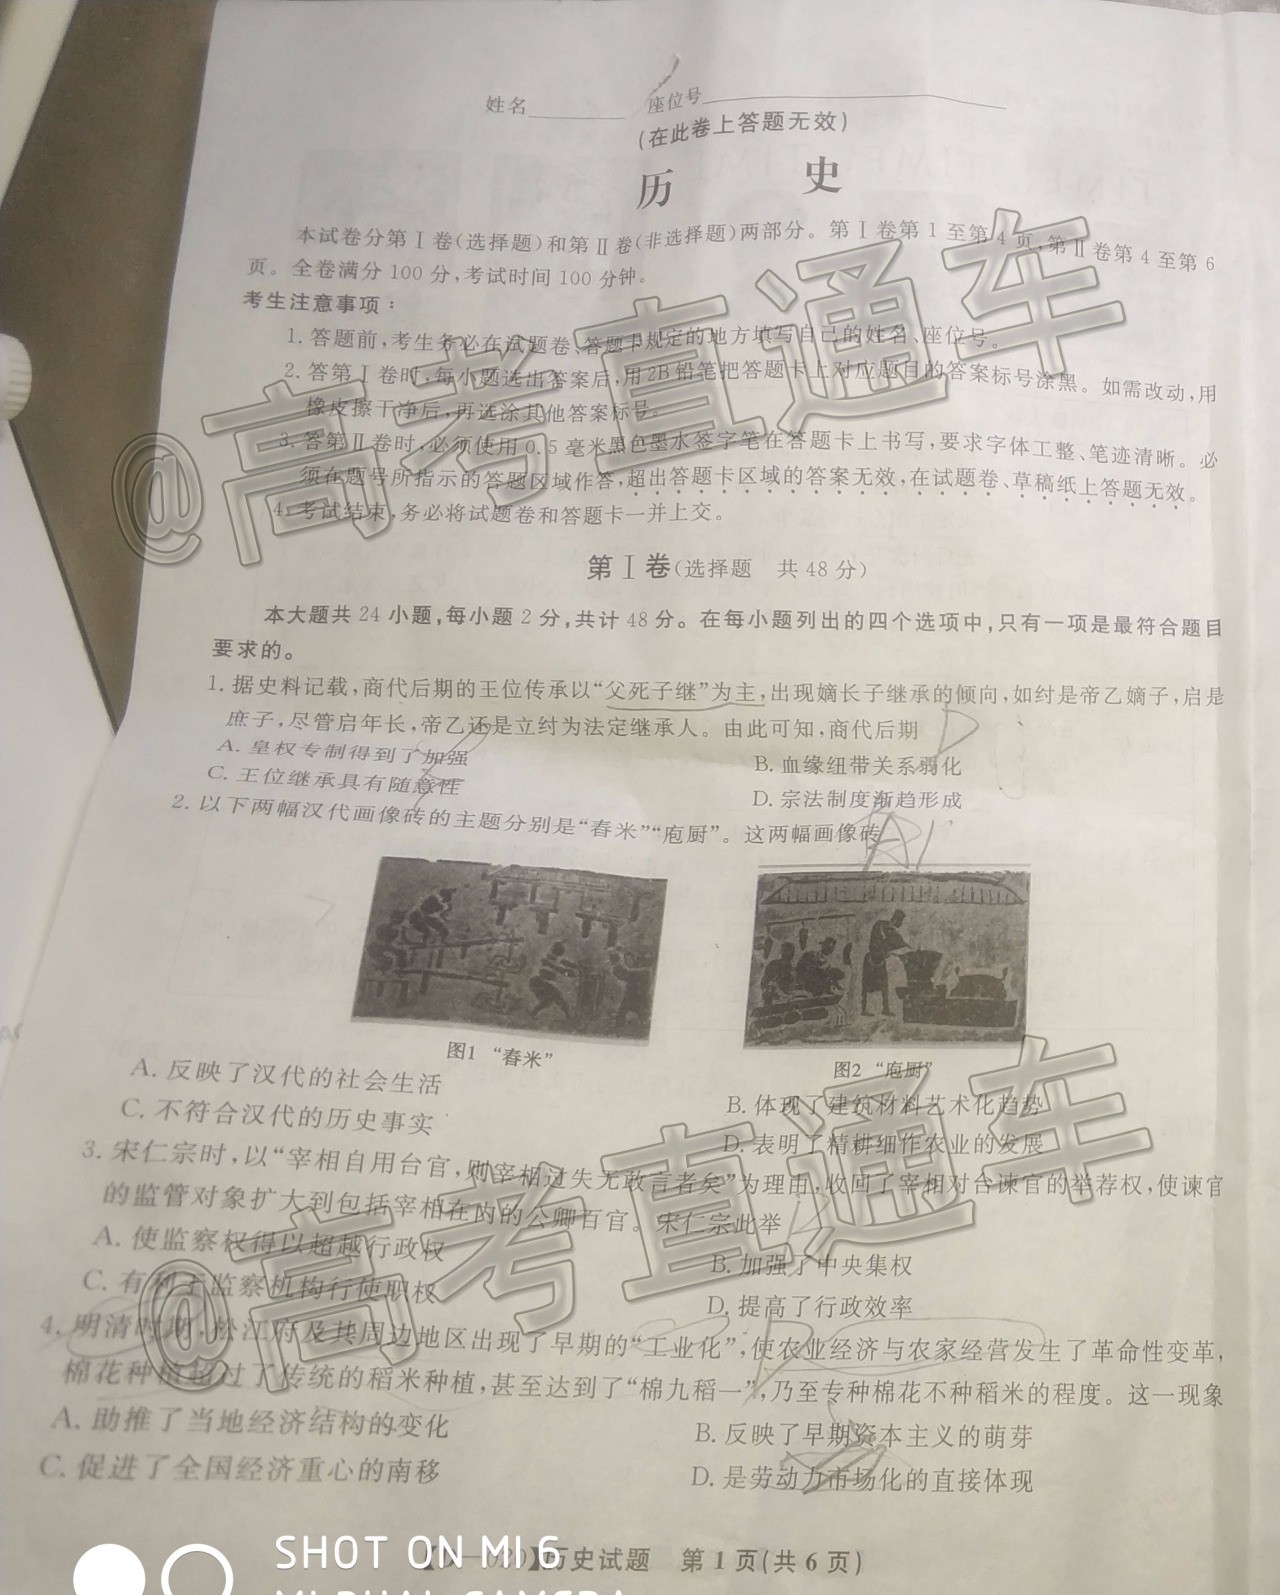 姓名 座位号
(在此卷上答题无效)
历 史
本试卷分第Ⅰ卷(选择题)和第Ⅱ卷(非选择题)两部分。第Ⅰ卷第1至第4页,第Ⅱ卷第4至第6
页。全卷满分100分,考试时间100分钟。
考生注意事项:
1. 答题前,考生务必在试题卷、答题卡规定的地方填写自己的姓名、座位号。
2. 答第Ⅰ卷时,每小题选出答案后,用2B铅笔把答题卡上对应题目的答案标号涂黑。如需改动,用
橡皮擦干净后,再选涂其他答案标号。
3. 答第Ⅱ卷时,必须使用0.5毫米黑色墨水签字笔在答题卡上书写,要求字体工整、笔迹清晰。必
须在题号所指示的答题区域作答,超出答题卡区域的答案无效,在试题卷、草稿纸上答题无效。
4. 考试结束,务必将试题卷和答题卡一并上交。
@高考直通车
第Ⅰ卷(选择题 共48分)
本大题共24小题,每小题2分,共计48分。在每小题列出的四个选项中,只有一项是最符合题目
要求的。
1. 据史料记载,商代后期的王位传承以“父死子继”为主,出现嫡长子继承的倾向,如纣是帝乙嫡子,启是
庶子,尽管启年长,帝乙还是立纣为法定继承人。由此可知,商代后期
D
A. 皇权专制得到了加强 B. 血缘纽带关系弱化
C. 王位继承具有随意性 D. 宗法制度渐趋形成
2. 以下两幅汉代画像砖的主题分别是“舂米”“庖厨”。这两幅画像砖
图1 “舂米” 图2 “庖厨”
A. 反映了汉代的社会生活 B. 体现了建筑材料艺术化趋势
C. 不符合汉代的历史事实 D. 表明了精耕细作农业的发展
3. 宋仁宗时,以“宰相自用台官,则宰相过失无敢言者矣”为理由,收回了宰相对台谏官的举荐权,使谏官
的监管对象扩大到包括宰相在内的公卿百官。宋仁宗此举
A. 使监察权得以超越行政权 B. 加强了中央集权
C. 有利于监察机构行使职权 D. 提高了行政效率
@高考直通车
4. 明清时期,松江府及其周边地区出现了早期的“工业化”,使农业经济与农家经营发生了革命性变革,
棉花种植超过了传统的稻米种植,甚至达到了“棉九稻一”,乃至专种棉花不种稻米的程度。这一现象
A. 助推了当地经济结构的变化 B. 反映了早期资本主义的萌芽
C. 促进了全国经济重心的南移 D. 是劳动力市场化的直接体现
历史试题 第1页(共6页)
SHOT ON MI 6
MI DUAL CAMERA